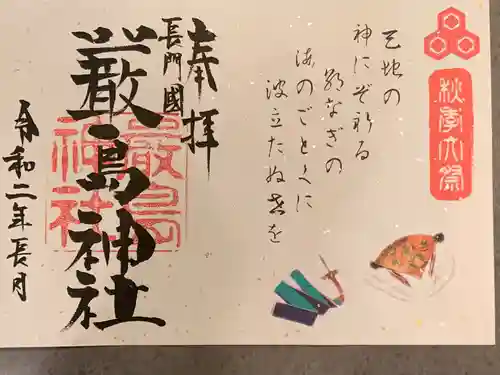 秋季大祭
天地の
神にぞ祈る
朝なぎの
海のごとくに
波立たぬ世を
奉拝
長門國
厳島神社
嚴島
神社
令和二年長月